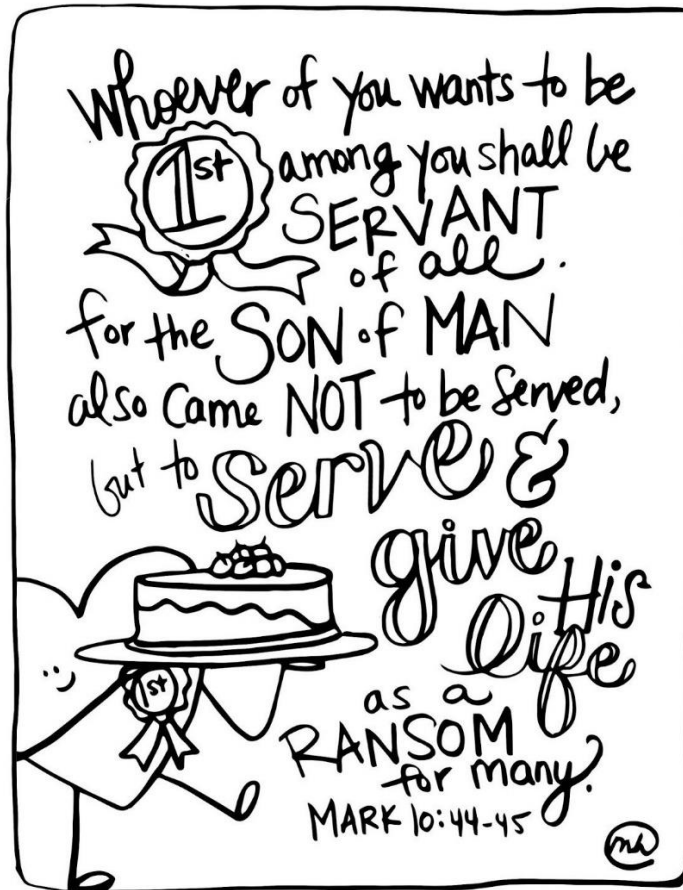 whoever of you wants to be
1st among you shall be
SERVANT
of all.
for the SON of MAN
also came NOT to be served,
but to serve &
give His
life
1st
as a
RANSOM
for many.
MARK 10:44-45
mh